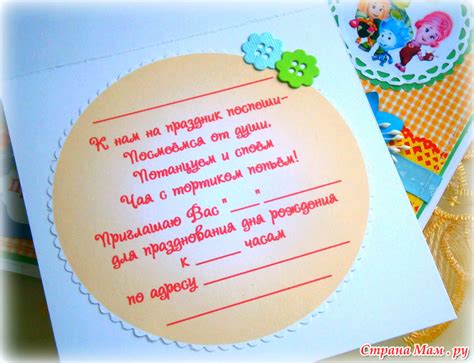 К нам на праздник поспеши-
Посмеёмся от души,
Потанцуем и споём
Чая с тортиком попьём!
Приглашаю Вас "___"________
для празднования дня рождения
к _____ часам
по адресу ____________
Страна Мам.ру